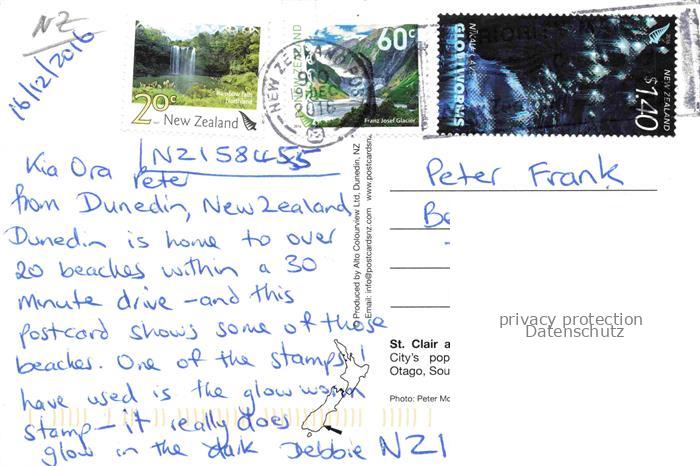 NZ
16/12/2016
Rainbow Falls
Northland
20c
New Zealand
NEW ZEALAND
60c
Franz Josef Glacier
GLOWWORMS
NEW ZEALAND
$1.40
NZ158455
Kia Ora Peter
from Dunedin, New Zealand
Dunedin is home to over
20 beaches within a 30
minute drive - and this
postcard shows some of those
beaches. One of the stamps I
have used is the glow worm
stamp - it really does
glow in the dark Debbie NZ1
Produced by Alto Colourview Ltd, Dunedin, NZ
Email: info@postcardsnz.com www.postcardsnz.
Peter Frank
Be
privacy protection
Datenschutz
St. Clair a
City's pop
Otago, Sou
Photo: Peter Mc